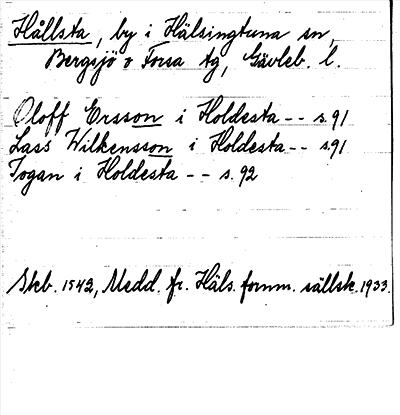 Hållsta, by i Hälsingtuna sn,
Bergsjö o Forsa tg, Gävleb. l.
Oloff Ersson i Holdesta -- s. 91
Lass Wilkensson i Holdesta -- s. 91
Togan i Holdesta -- s. 92
Skb. 1542, Medd. fr. Häls. fornm. sällsk. 1933.